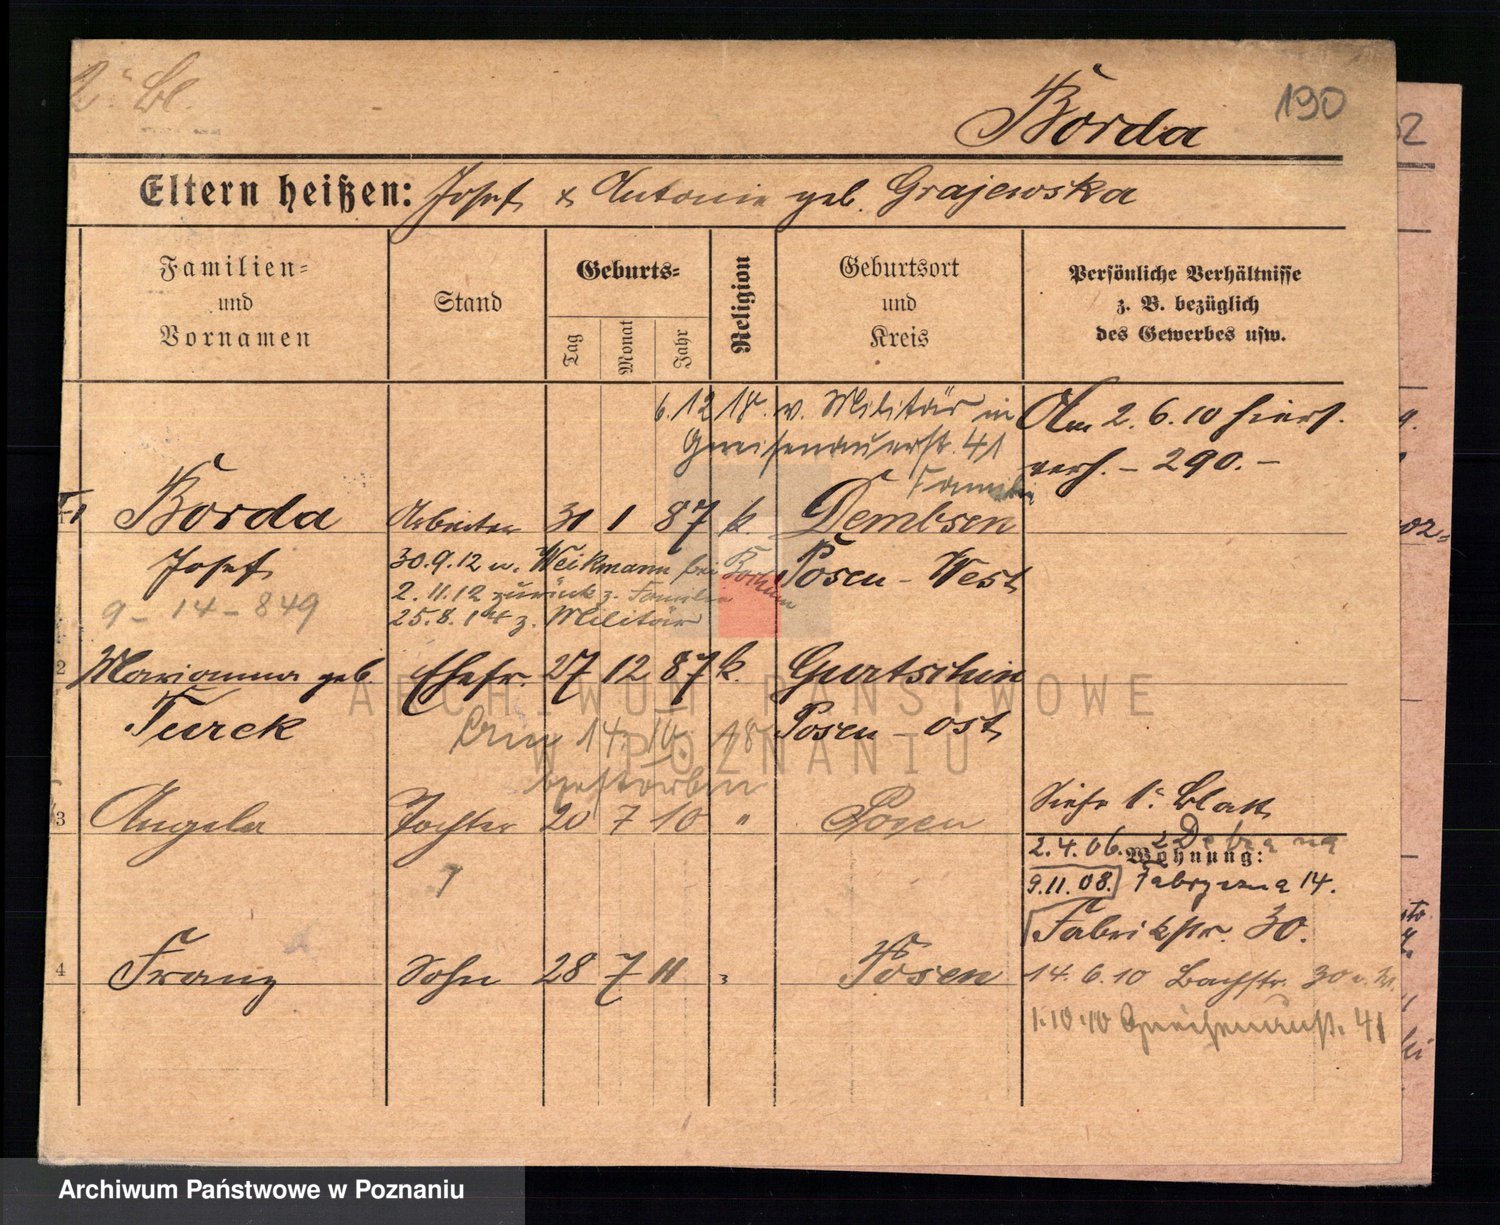 2. Bl.
Borda
190
Eltern heißen: Josef & Antonie geb. Grajewska
Familien-
und
Vornamen
Stand
Geburts-
Tag
Monat
Jahr
Religion
Geburtsort
und
Kreis
Persönliche Verhältnisse
z. B. bezüglich
des Gewerbes usw.
6.12 18. v. Militär in
Gneisenauerstr. 41
Familie
Am 2.6.10 hier
verh. – 290. –
1 Borda Arbeiter 31 1 87 k. Dembsen
Josef 30.9.12 n. Weikmann bei Bochum Posen - West
9 - 14 - 849
2.11.12 zurück z. Familie
25.8.14 z. Militär
2 Marianna geb. Ehefr. 27 12 87 k. Gurtschin
Turek Am 14. 10. 18 Posen - Ost
gestorben
3 Angela Tochter 20 7 10 " Posen
Siehe 1. Blatt
2.4.06.
Wohnung:
9.11.08. 14.
Fabrikstr. 30.
4 Franz Sohn 28 7 11 " Posen
14.6.10 Bachstr. 30
1.10.10 Gneisenaustr. 41
ARCHIWUM PAŃSTWOWE
W POZNANIU
Archiwum Państwowe w Poznaniu